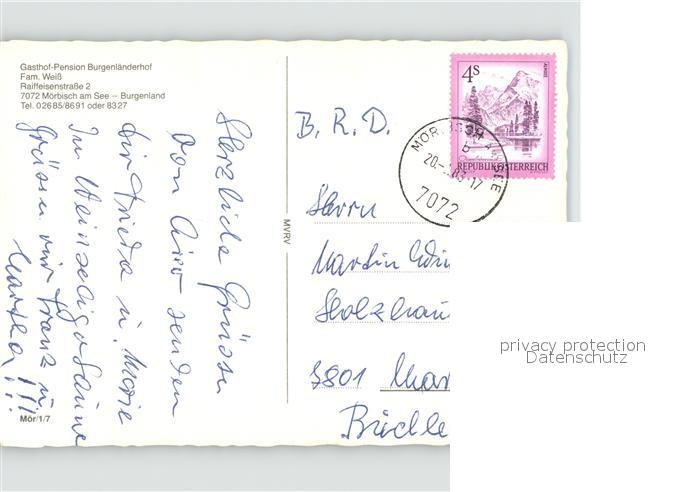 Gasthof-Pension Burgenländerhof
Fam. Weiß
Raiffeisenstraße 2
7072 Mörbisch am See – Burgenland
Tel. 02685/8691 oder 8327
Herzliche Grüsse
von hier senden
dir Frieda u.
In Weinseliger Laune
Grüssen wir Franz u.
Martha !!!
Mör/1/7
MVRV
4S
ALMSEE
REPUBLIK ÖSTERREICH
MÖRBISCH AM SEE
7072
B. R. D.
Herrn
Martin
Holzhau
Mar
privacy protection
Datenschutz